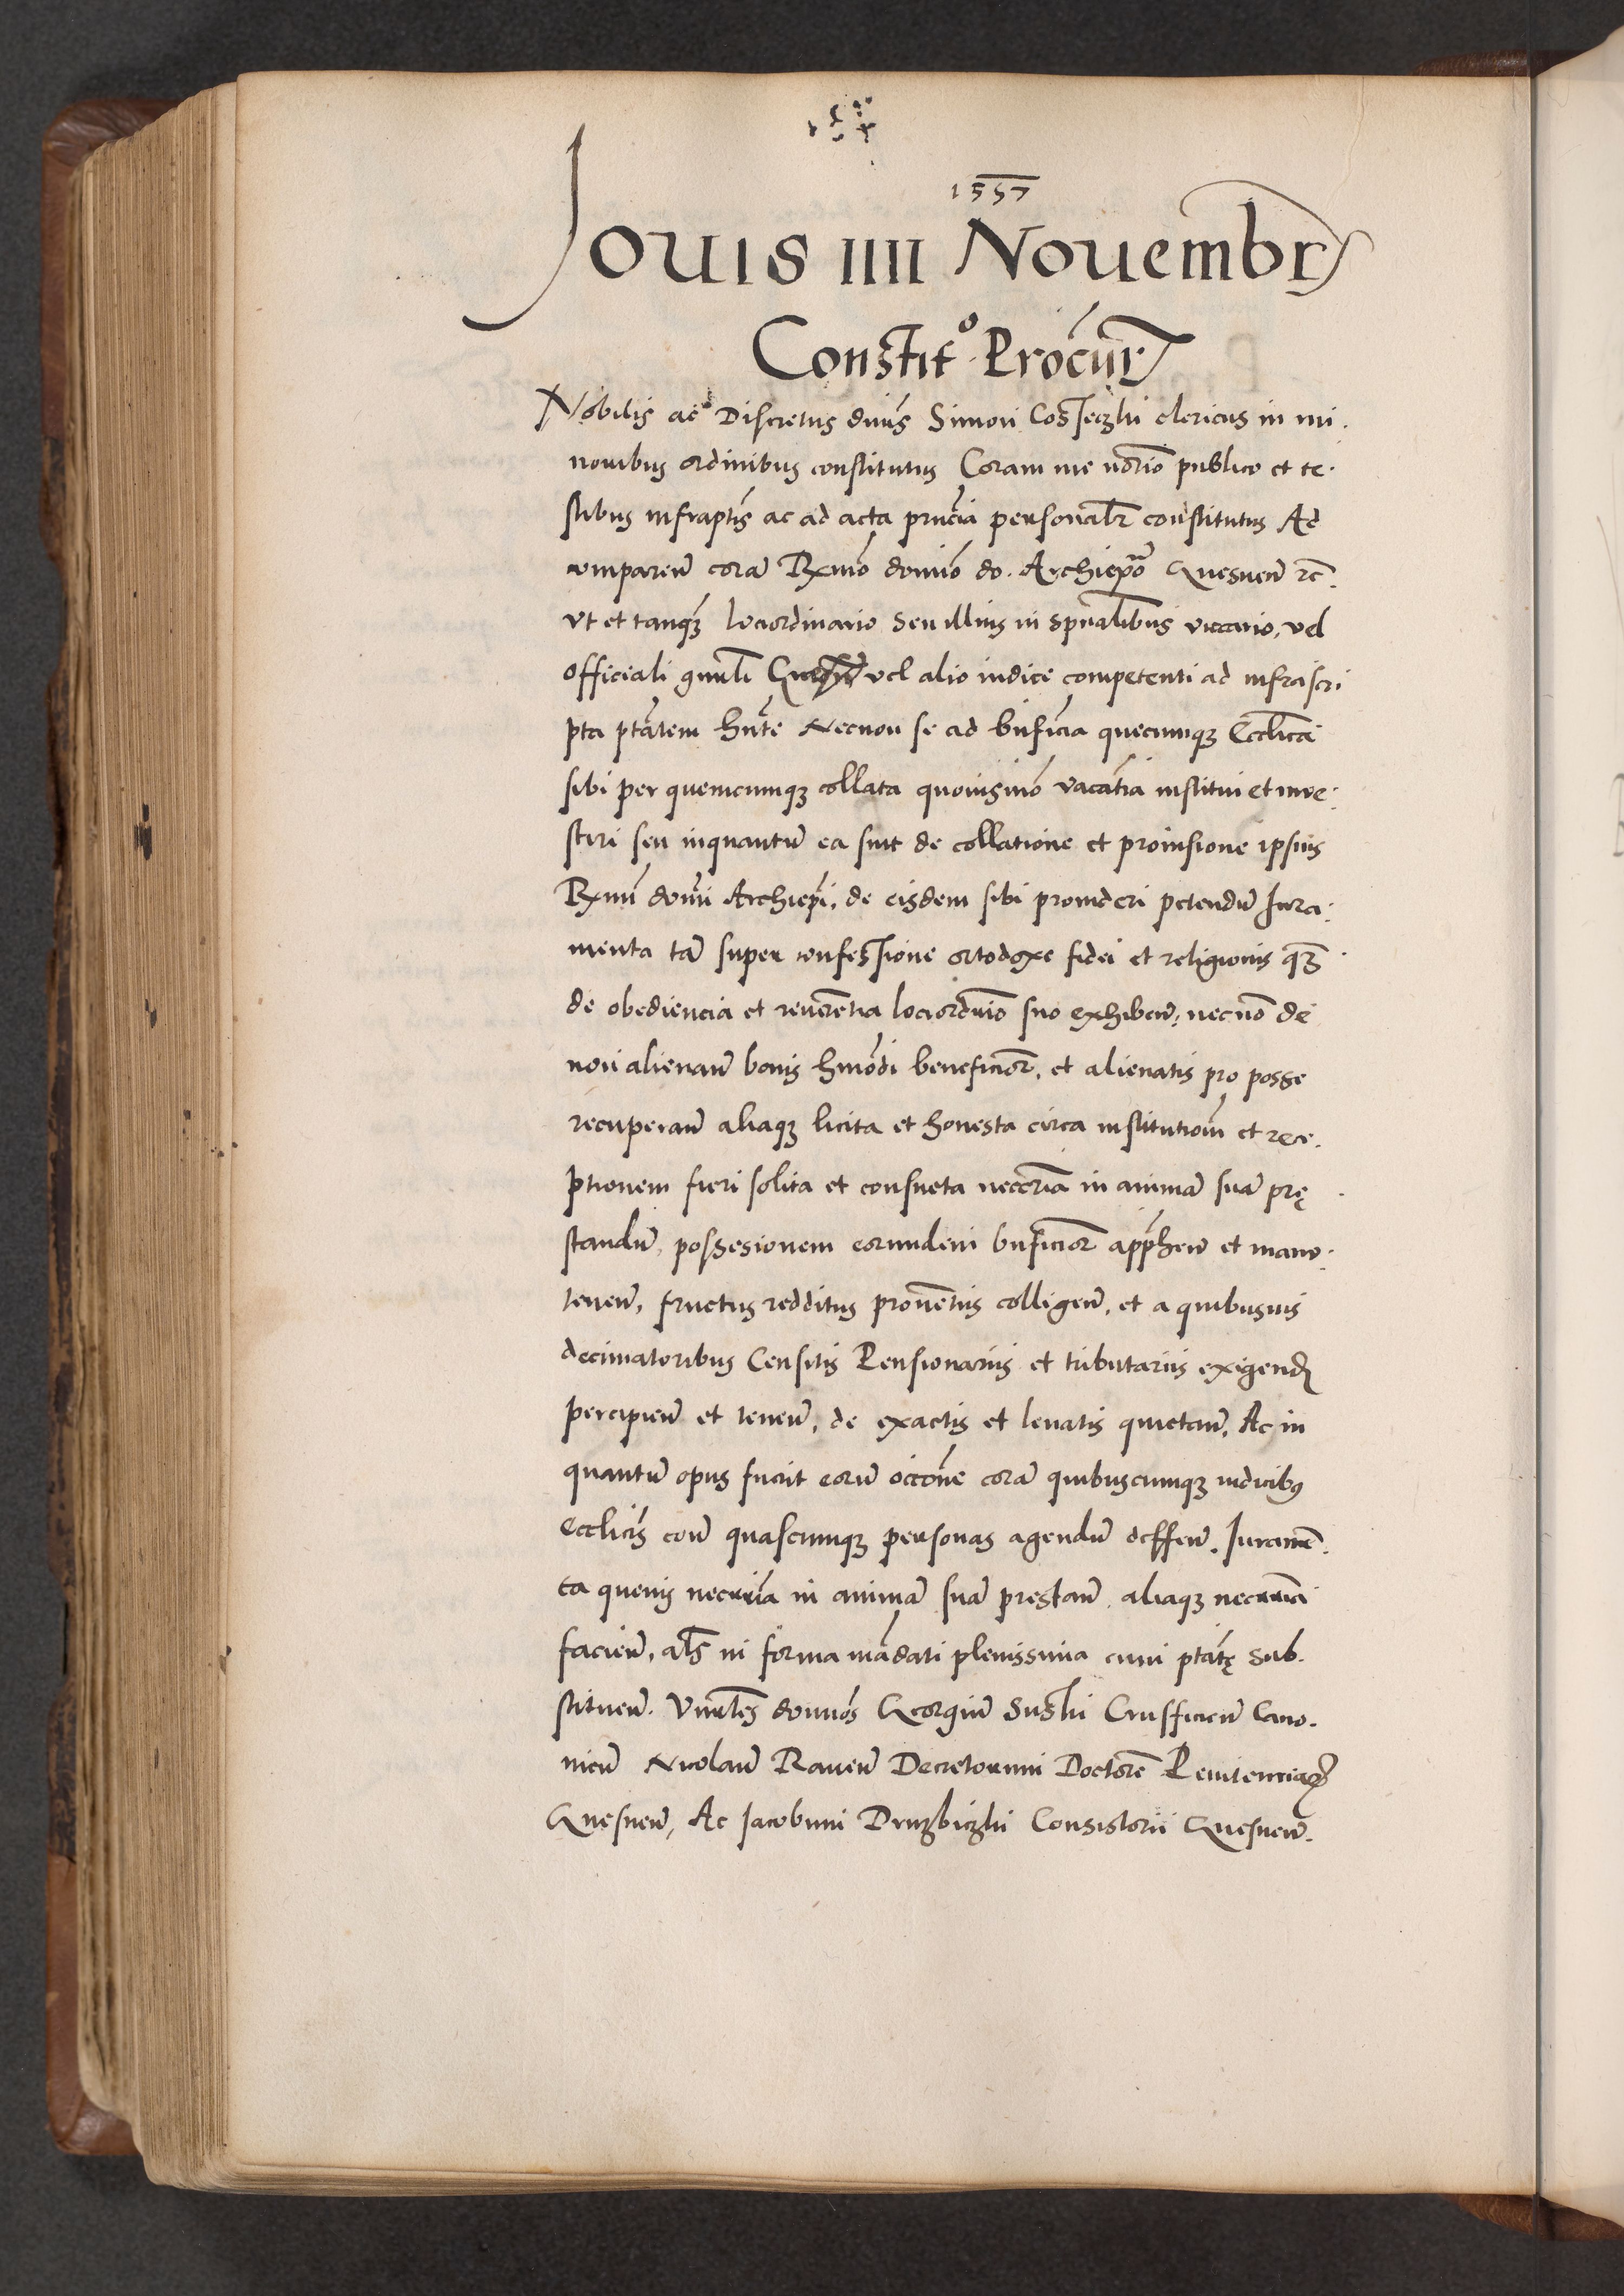 1557
Jouis IIII Nouembr
Constit° Procur
Nobilis ac Discretus dnus Simon Cosseczki clericus in mi.
noribus ordinibus constitutus Coram me notrio publico et te.
stibus infraptis ac ad acta prncia personalr constitutus Ad
comparen̄ corā Rxmō domīo do. Archiepō Gnesnen̄ rc̄.
vt et tanqȝ lociordinario seu illius in spūalibus viccario, vel
officiali gnnlī vel alio iudice competenti ad infrascri
pta ptātem hn̄te Necnon se ad bn̄ficia quecumqȝ Ecclica
sibi per quemcumqȝ collata quouismō vacātia institui et inue.
stiri seu inquantū ea sint de collatione et prouisione ipsius
Rxmi domi Archiepi, de eisdem sibi prouideri petendū Iura.
menta tā super confessione ortodoxe fidei et religionis qȝ
de obediencia et reuerētia lociordnīo suo exhiben̄, necnō de
non alienan̄ bonis hmōdi beneficior̄, et alienatis pro posse
recuperan̄ aliaqȝ licita et honesta circa institutiom̄ et rece.
ptionem fieri solita et consueta neccria in animā suā prę
standū, possesionem eorundem bn̄ficior̄ apphen̄ et manu.
tenen̄, fructus redditus prouētus colligen̄, et a quibusuis
decimatoribus Censitis Pensionariis et tributariis exigend
percipien̄ et leuen̄, de exactis et leuatis quietan̄, Ac in
quantū opus fuerit eorū occone corā quibuscumqȝ iudicibꝰ
Ecclicis con̄ quascumqȝ personas agendū deffen̄. Iuramē.
ta queuis necrria in animā suā prestan̄ aliaqȝ necrria
facien̄, als in forma mādati plenissima cum ptātę sub.
stituen̄. Vnrles domnos Georgiū Suski Crusficien̄ Cano.
nicū Nicolaū Rauen̄ Decretorum Doctorē Penitenciar
Gnesnen̄, Ac Jacobum Druzbiczki Consistorii Gnesnen̄.